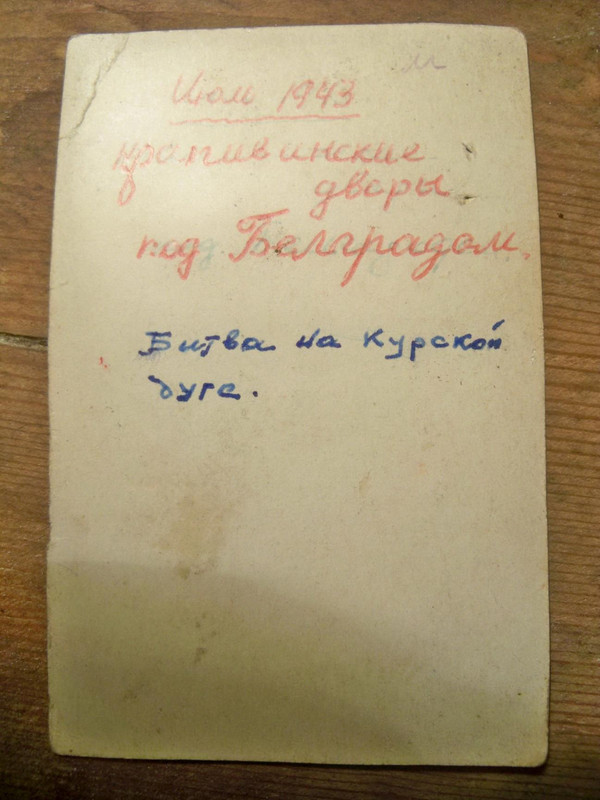 Июль 1943
крапивинские
дворы
под Белградом.
Битва на Курской
дуге.